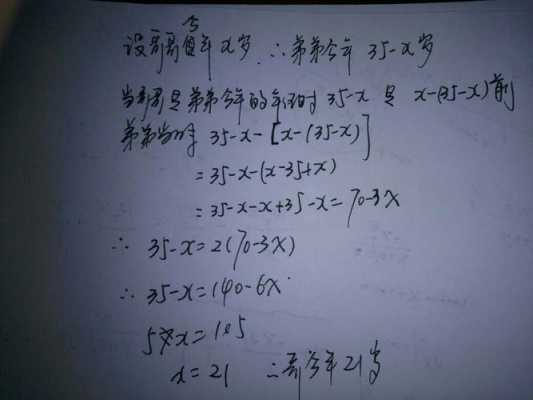 设哥哥今年x岁.∴弟弟今年 35-x岁
当哥哥是弟弟今年的年龄时 35-x 是 x-(35-x)前
弟弟当时 35-x-[x-(35-x)]
=35-x-(x-35+x)
=35-x-x+35-x=70-3x
∴ 35-x=2(70-3x)
∴ 35-x=140-6x
5x=105
x=21 ∴哥今年21岁